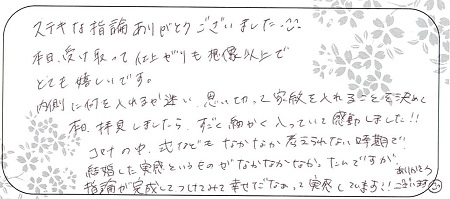 ステキな指論ありがとうございました。
本日、受け取って仕上がりも想像以上で
とても嬉しいです。
内側に何を入れるか迷い、思い切って家紋を入れることを決めて
本日、拝見しましたら、すごく細かく入っていて感動しました!!
コロナの中、式などもなかなか考えられない時期で
結婚した実感というものがなかなかなかったんですが、
指論が完成してつけてみて幸せだなぁって実感しています!! ありがとうございます